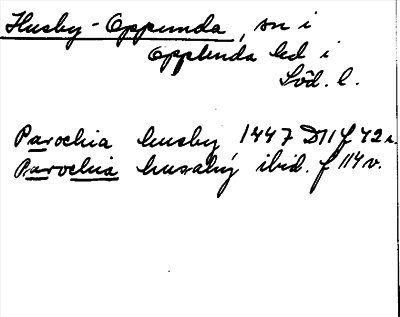 Husby-Oppunda, sn i
Opplunda hd i
Söd. l.
Parochia husby 1447 D11 f 42 r.
Parochia husaby ibid. f 114 v.